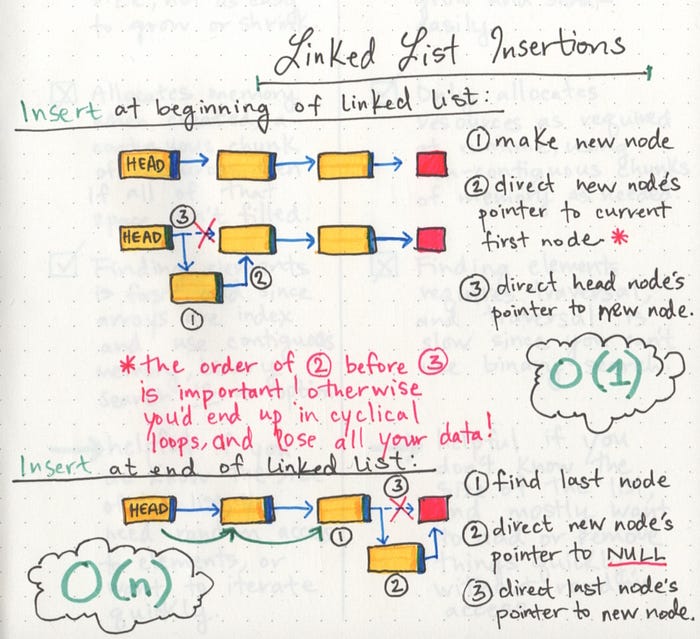 Linked List Insertions
Insert at beginning of linked list:
HEAD
① make new node
② direct new node's
pointer to current
first node. *
③ direct head node's
pointer to new node.
HEAD
③
②
①
O(1)
* the order of ② before ③
is important! otherwise
you'd end up in cyclical
loops, and lose all your data!
Insert at end of linked list:
HEAD
③
①
②
O(n)
① find last node
② direct new node's
pointer to NULL
③ direct last node's
pointer to new node.